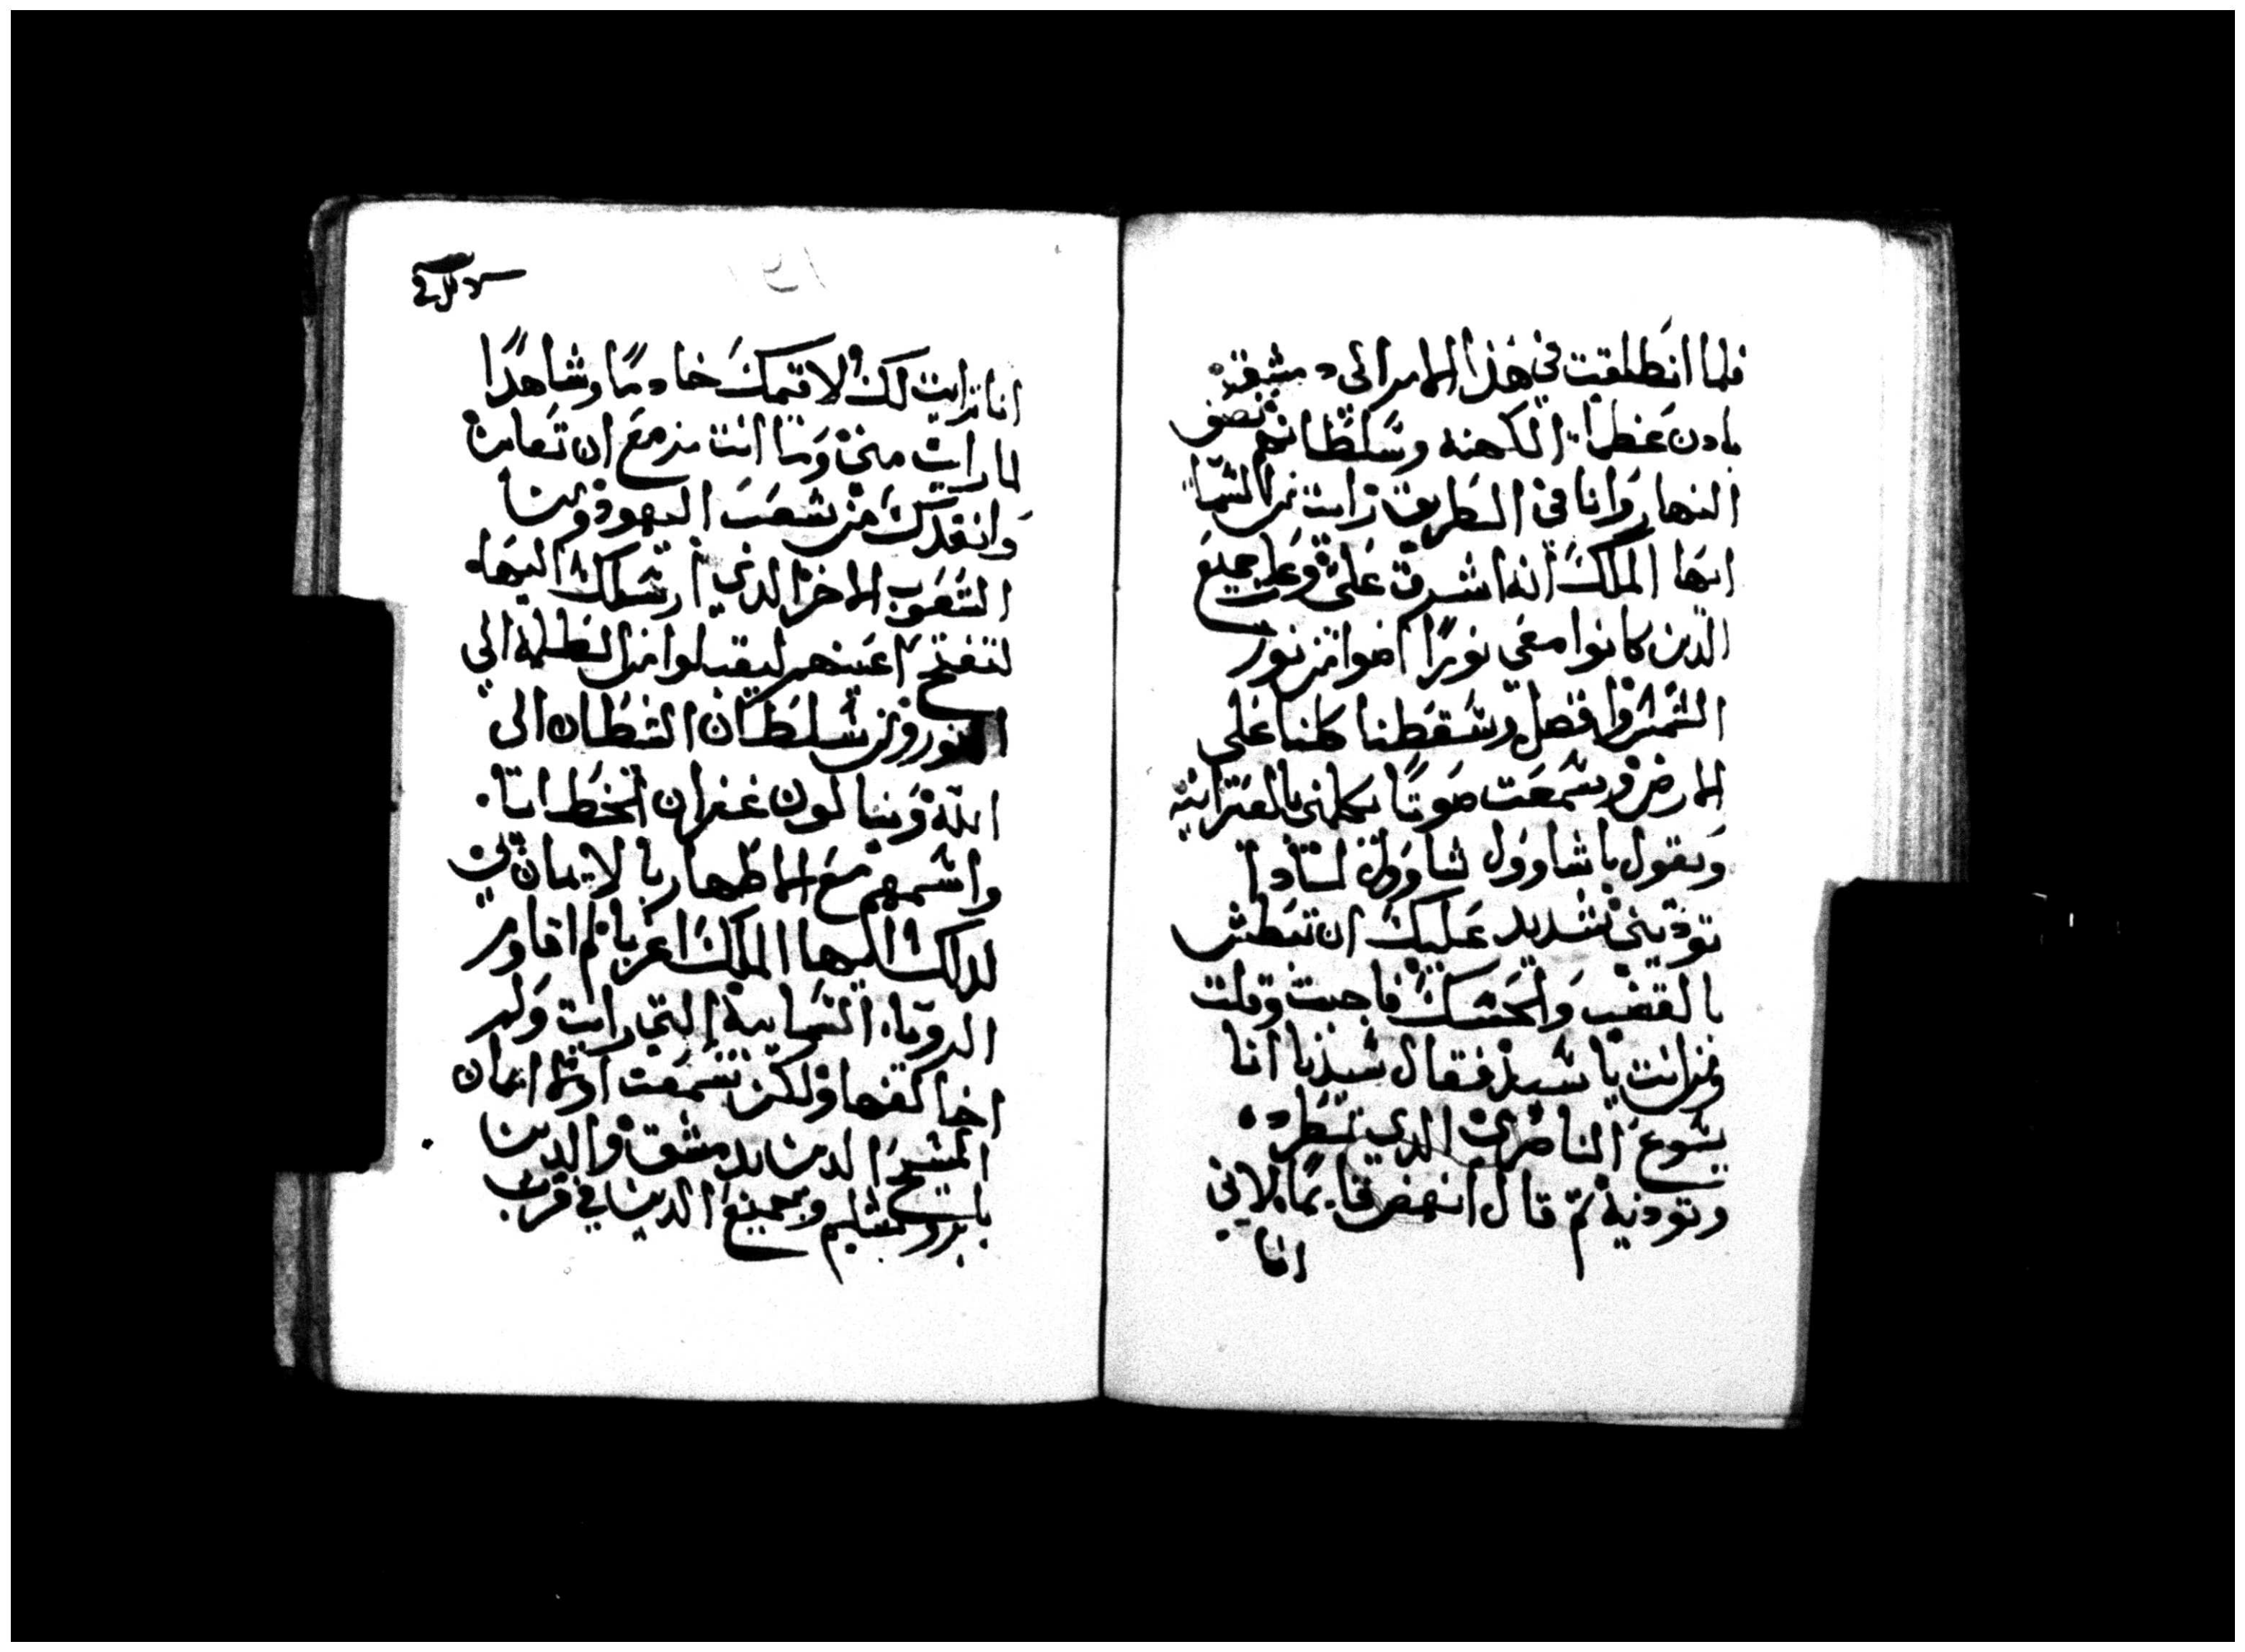 فلما انطلقت في هذا الامر الى دمشقة
بادن عظما الكهنه وسلطانهم نصف
النهار وانا في الطريق رايت من السما
ايها الملك انه اشرق علي وعلى جميع
الذين كانوا معي نورًا اضوا من نور
الشمس وافضل وسقطنا كلنا على
الارض وسمعت صوتًا يكلمني بالعبرانيه
ويقول يا شاوول شاوول لمادا
توديني شديد عليك ان تبطش
بالقضب والحسك فاجبت وقلت
من انت يا سيد فقال سيدنا انا
يسوع الناصري الدي تطرده
وتودنية ثم قال انهض قايمًا لاني
انا
انا ترايت لك لاقيمك خادمًا وشاهدًا
لما رايت مني وما انت مزمع ان تعاين
وانقدك من شعب اليهود ومن
الشعوب الاخر الدي ارسلك اليها
لتفتح اعينهم ليقبلوا من الظلمة الي
النور ومن سلطان الشطان الى
الله وينالون غفران الخطايا
واسمهم مع الاطهار بالايمان بي
لدلك ايها الملك اغربا لم اقاوم
الرويا السمايية التي رايت ولم
اخالفها ولكن سمعت اولا ايمان
المسيح الدين بدمشق والدين
بايروشليم وبجميع الدين في قرب